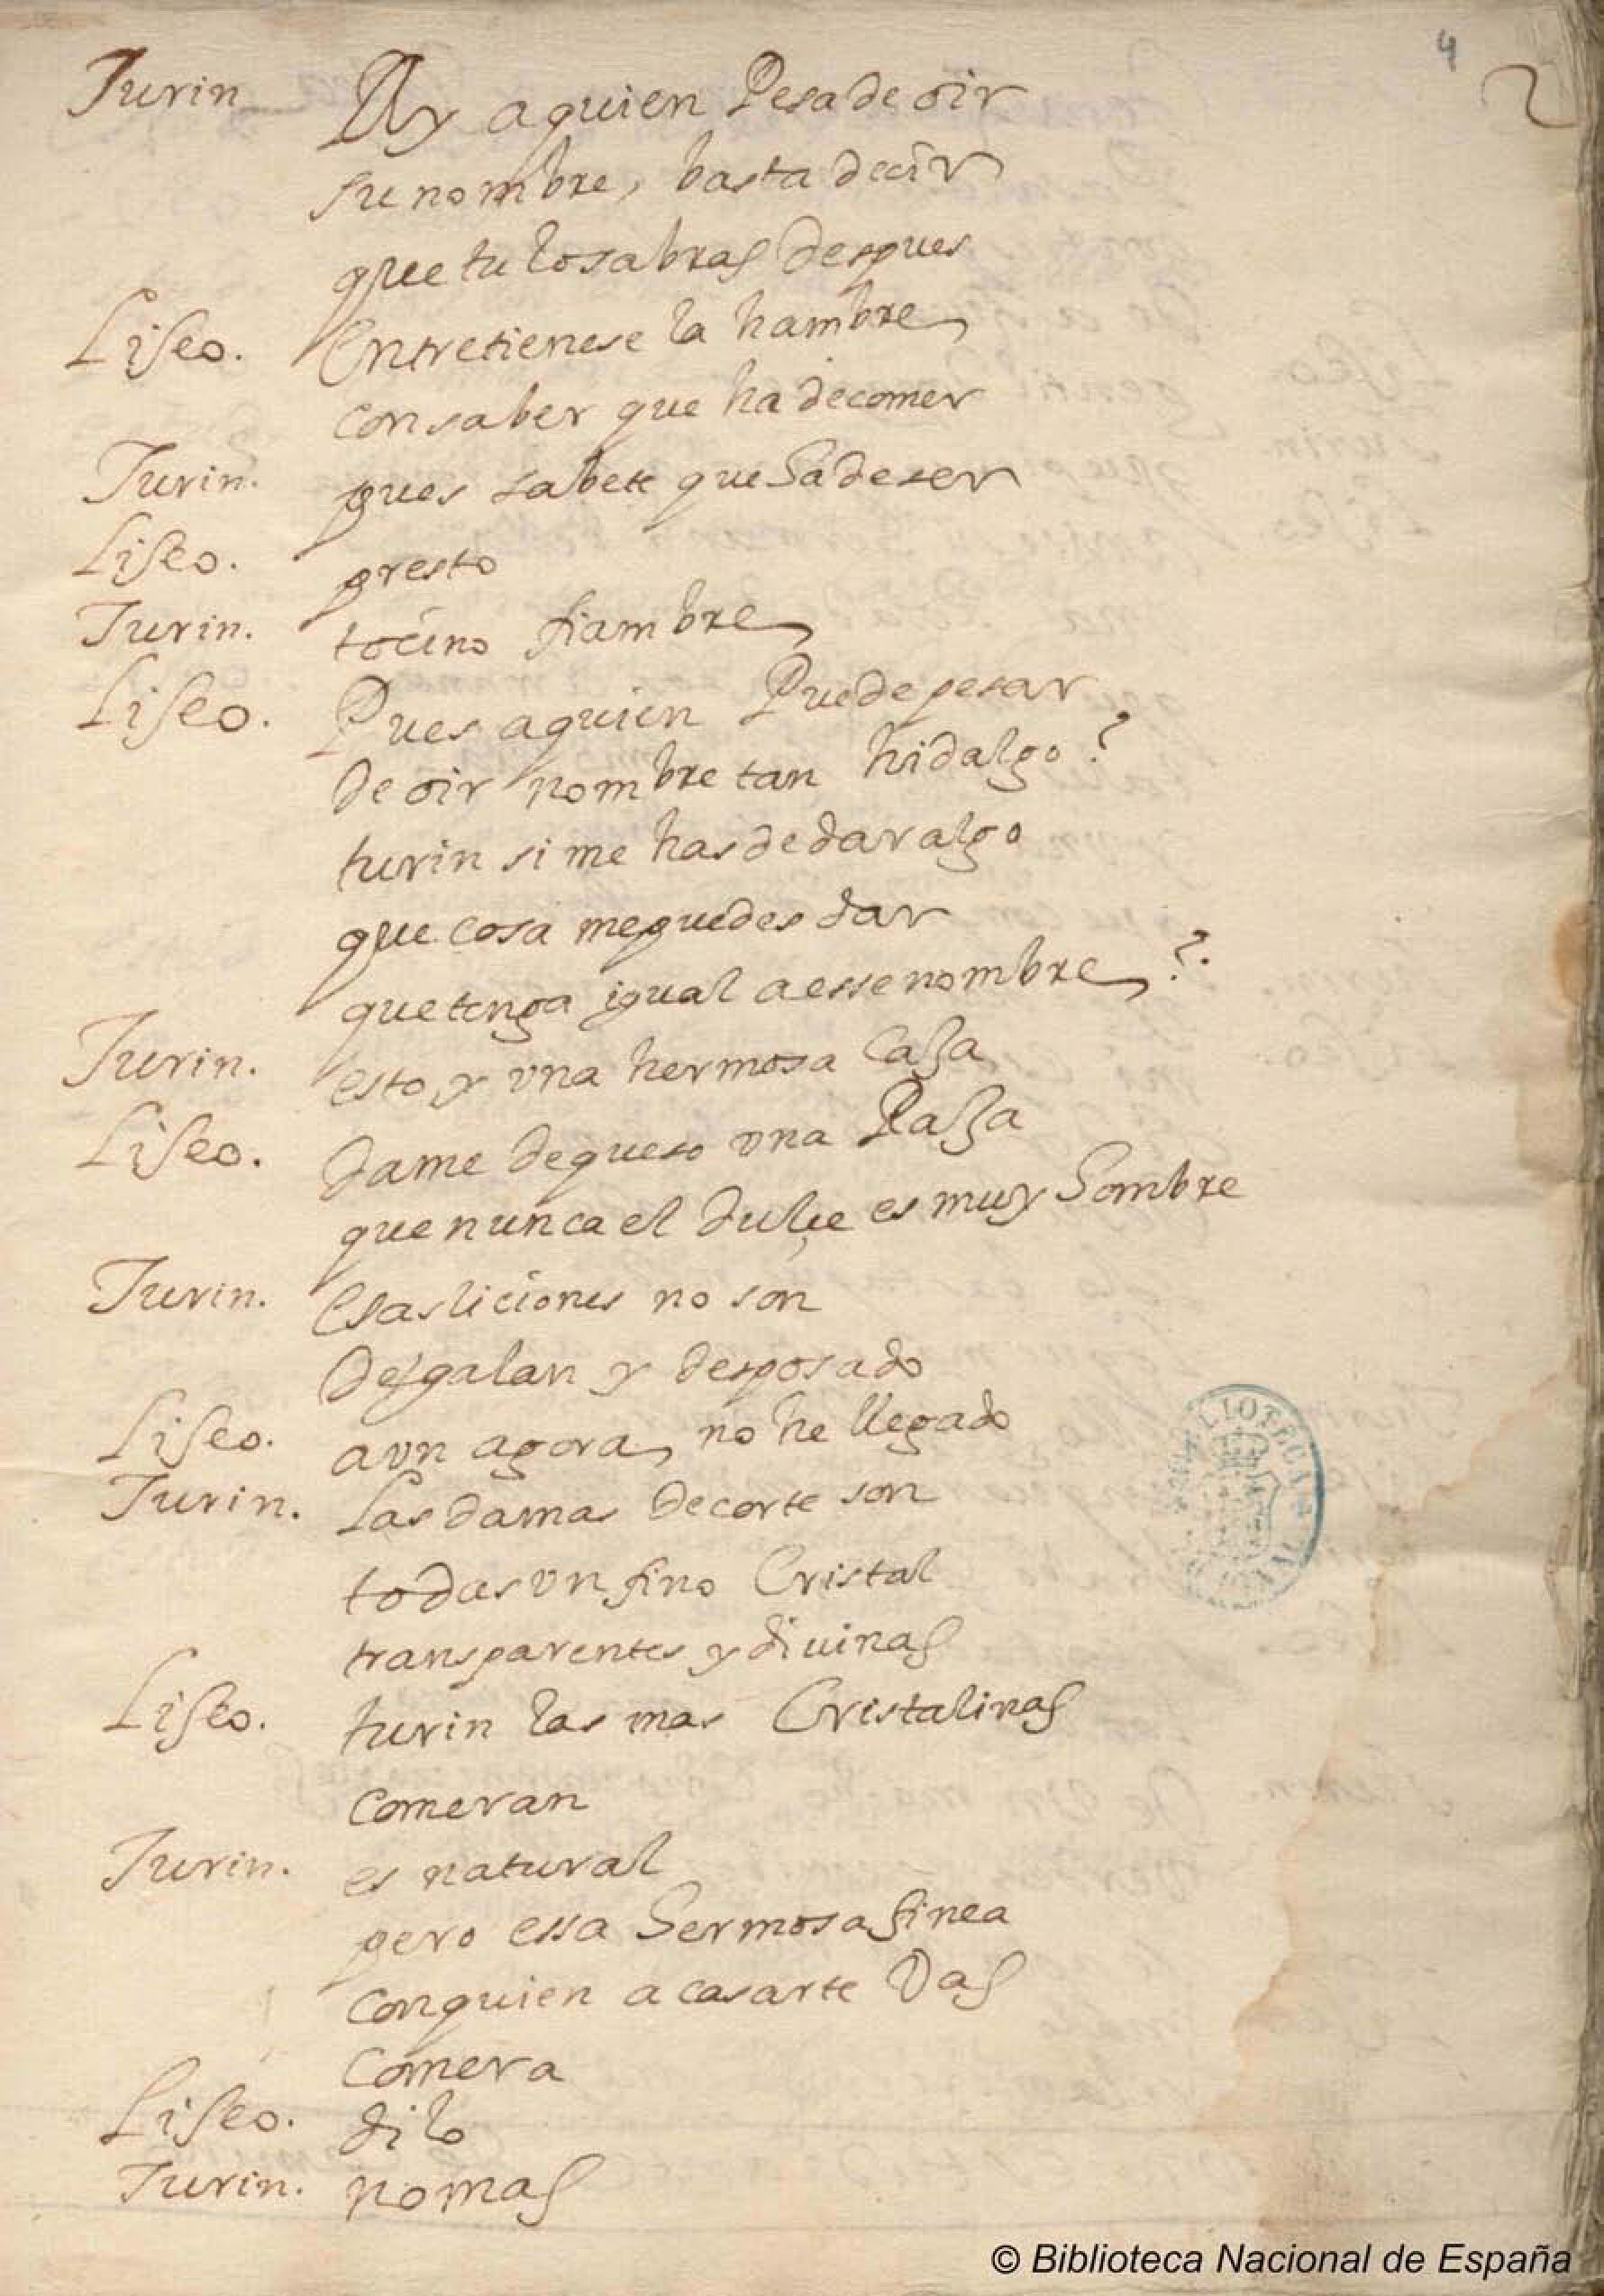 4
2
Turin Ay a quien Pesa de oir
su nombre, basta decir
que tu lo sabras despues
Liseo. Entretienese la hambre
con saber que ha de comer
Turin. pues sabete que ha de ser
Liseo. presto
Turin. tocino fiambre
Liseo. Pues a quien Puede pesar
de oir nombre tan hidalgo?
turin si me has de dar algo
que cosa me puedes dar
que tenga igual a esse nombre?.
Turin. esto y vna hermosa Caxa
Liseo. dame de queso vna Raxa
que nunca el dulçe es muy hombre
Turin. Esas liciones no son
de galan y desposado
Liseo. avn agora no he llegado
Turin. las damas de corte son
todas vn fino Cristal
transparentes y diuinas
Liseo. turin las mas Cristalinas
comeran
Turin. es natural
pero essa hermosa finea
con quien a casarte Vas
comera
Liseo. dilo
Turin. no mas
BIBLIOTECA
© Biblioteca Nacional de España